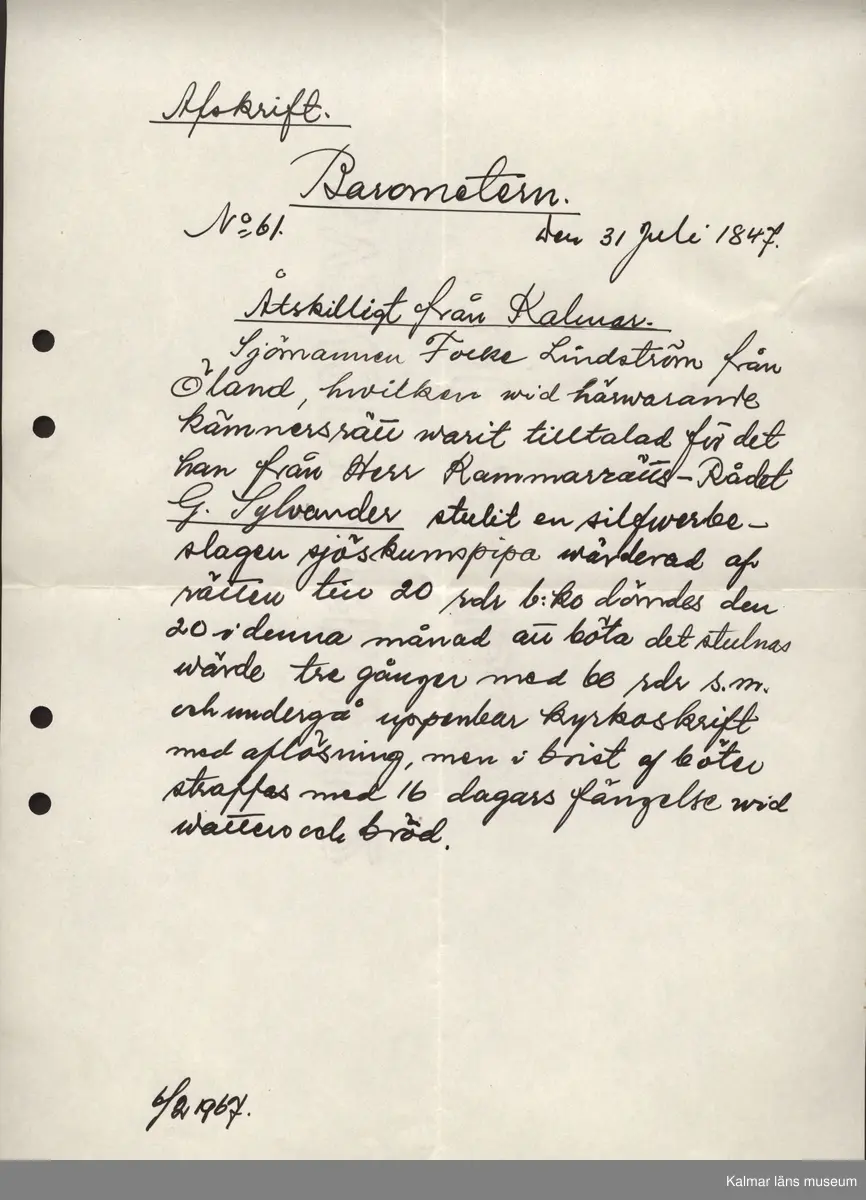 Afskrift.
Barometern.
No 61. den 31 Juli 1847.
Åtskilligt från Kalmar.
Sjömannen Focke Lindström från
Öland, hvilken wid härwarande
kämnersrätt warit tilltalad för det
han från Herr Kammarrätts-Rådet
G. Sylvander stulit en silfwerbe-
slagen sjöskumspipa wärderad af
rätten till 20 rdr b:ko dömdes den
20 i denna månad att böta det stulnas
wärde tre gånger med 60 rdr s.m.
och undergå uppenbar kyrkoskrift
med aflösning, men i brist af böter
straffas med 16 dagars fängelse wid
watten och bröd.
6/2 1967.
Kalmar läns museum